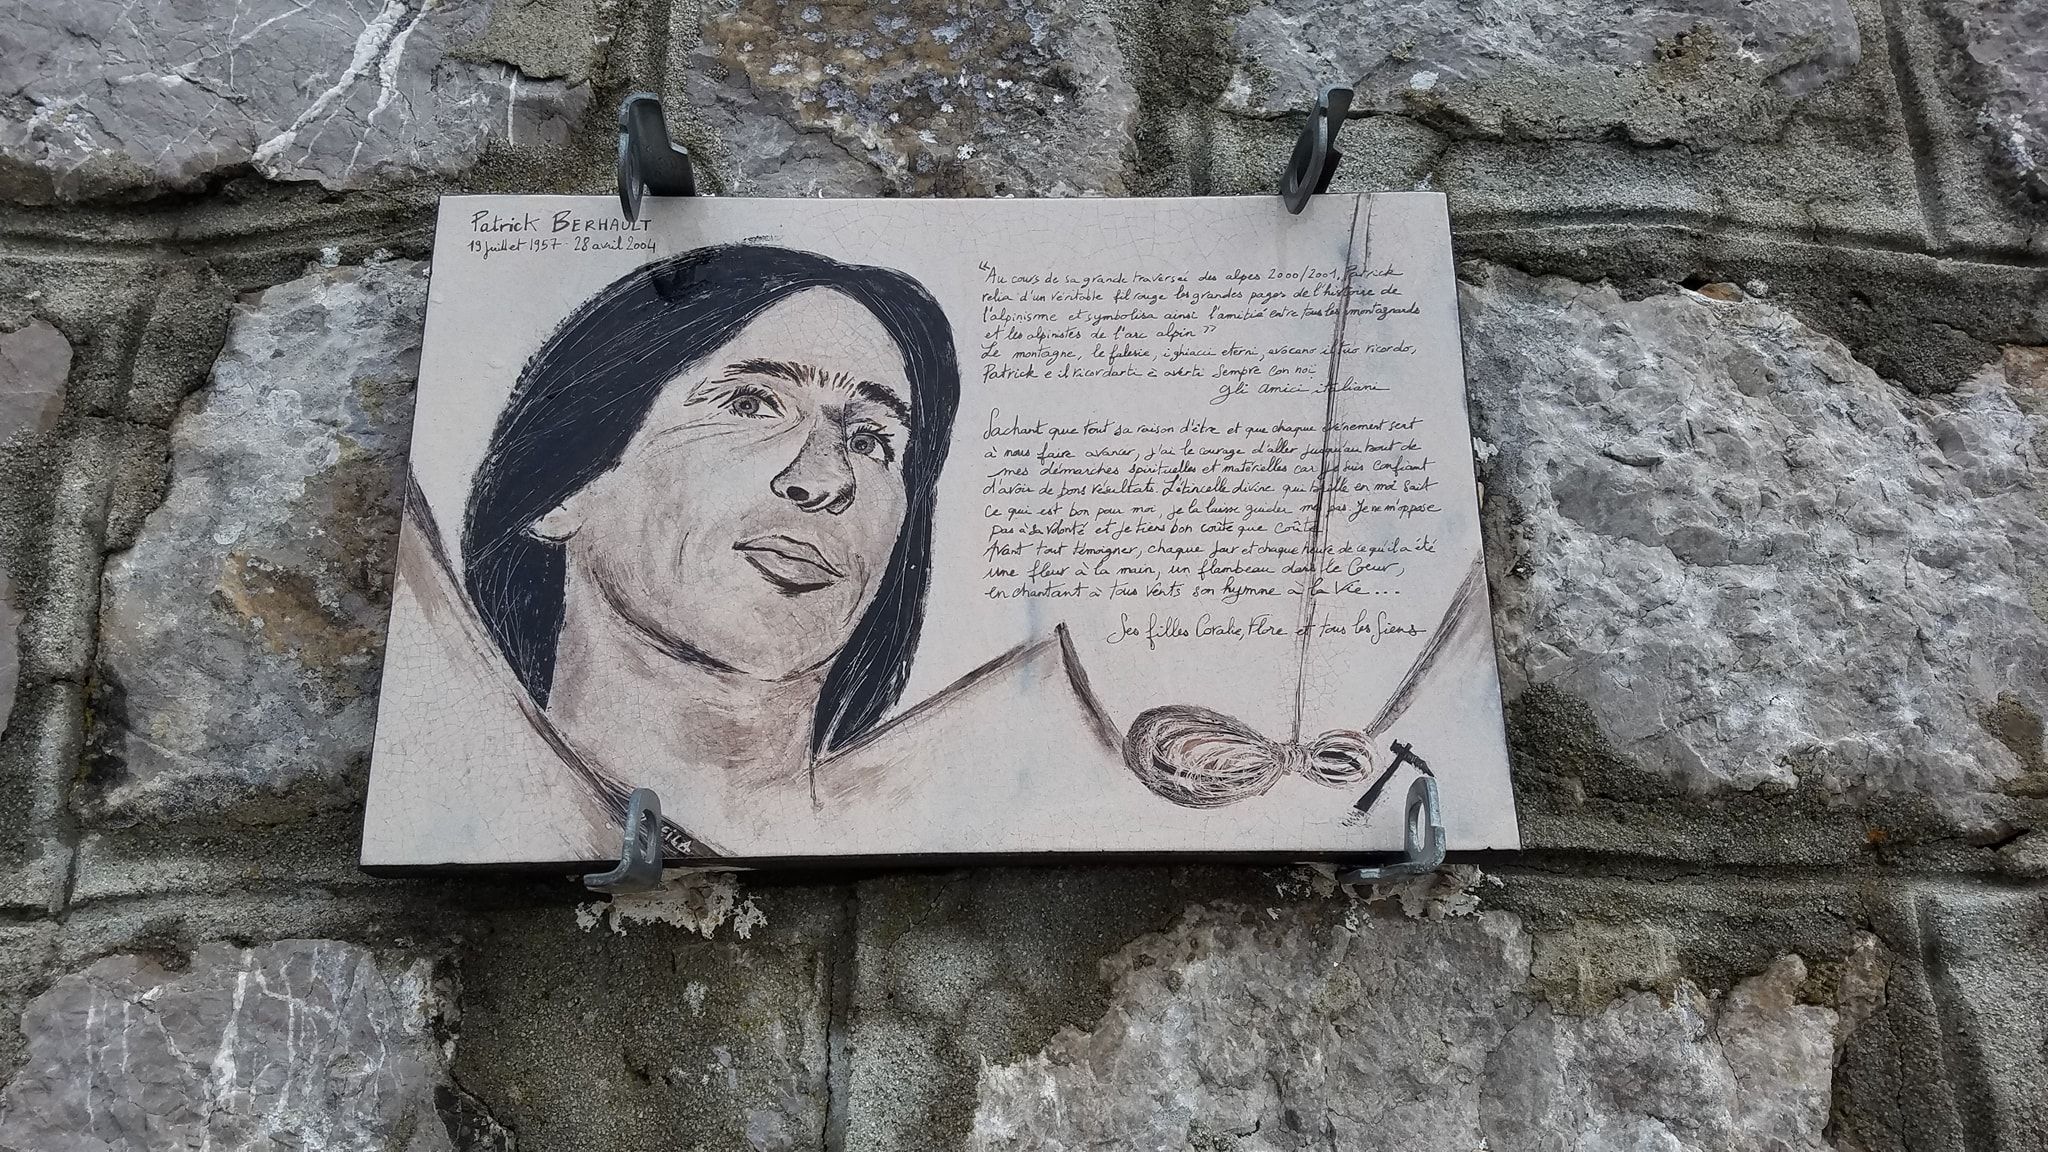 Patrick BERHAULT
19 juillet 1957 - 28 avril 2004
"Au cours de sa grande traverseé des alpes 2000/2001, Patrick
relia d'un véritable fil rouge les grandes pages de l'histoire de
l'alpinisme et symbolisa ainsi l'amitié entre tous les montagnards
et les alpinistes de l'arc alpin"
Le montagne, le falesie, i ghiacci eterni, evocano il tuo ricordo,
Patrick e il ricordarti è averti sempre con noi
gli amici italiani
Sachant que tout sa raison d'être et que chaque événement sert
à nous faire avancer, j'ai le courage d'aller jusqu'au bout de
mes démarches spirituelles et matérielles car je suis confiant
d'avoir de bons résultats. L'étincelle divine qui brille en moi sait
ce qui est bon pour moi, je la laisse guider mes pas. Je ne m'oppose
pas à sa volonté et je tiens bon coûte que coûte!
Avant tout témoigner, chaque jour et chaque heure de ce qu'il a été
une fleur à la main, un flambeau dans le Coeur,
en chantant à tous vents son hymne à la Vie...
Ses filles Coralie, Flore et tous les Siens